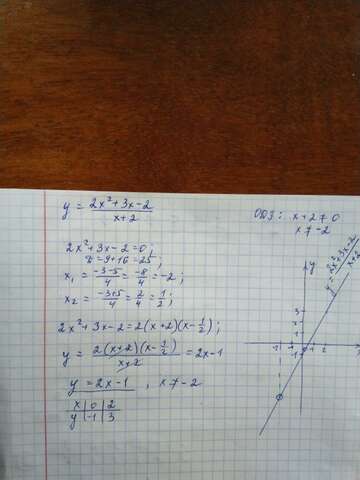 y = (2x²+3x-2)/(x+2)
ОДЗ: x+2≠0
x≠-2
2x²+3x-2=0;
D=9+16=25;
x₁ = (-3-5)/4 = -8/4 = -2;
x₂ = (-3+5)/4 = 2/4 = 1/2;
2x²+3x-2=2(x+2)(x-1/2);
y = 2(x+2)(x-1/2)/(x+2) = 2x-1
y = 2x-1, x≠-2
x | 0 | 2
y | -1 | 3
y
y = (2x²+3x-2)/(x+2)
3
2
1
1 2
-1